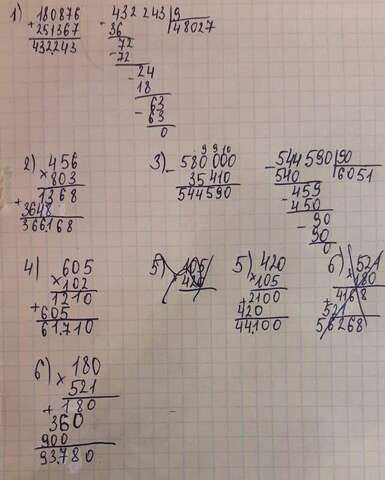 1) + 180876
251367
432.243
- 432 243 | 9
36 | 48027
72
- 72
- 24
18
63
- 63
0
2) × 456
803
+ 1368
3648
366.168
3) - 580 000
35 410
544590
- 544590 | 90
540 | 6051
459
- 450
90
- 90
0
4) × 605
102
+ 1210
605
61.710
5) 105
420
5) × 420
105
+ 2100
420
44100
6) × 521
180
+ 4168
521
56268
6) × 180
521
+ 180
360
900
93.780